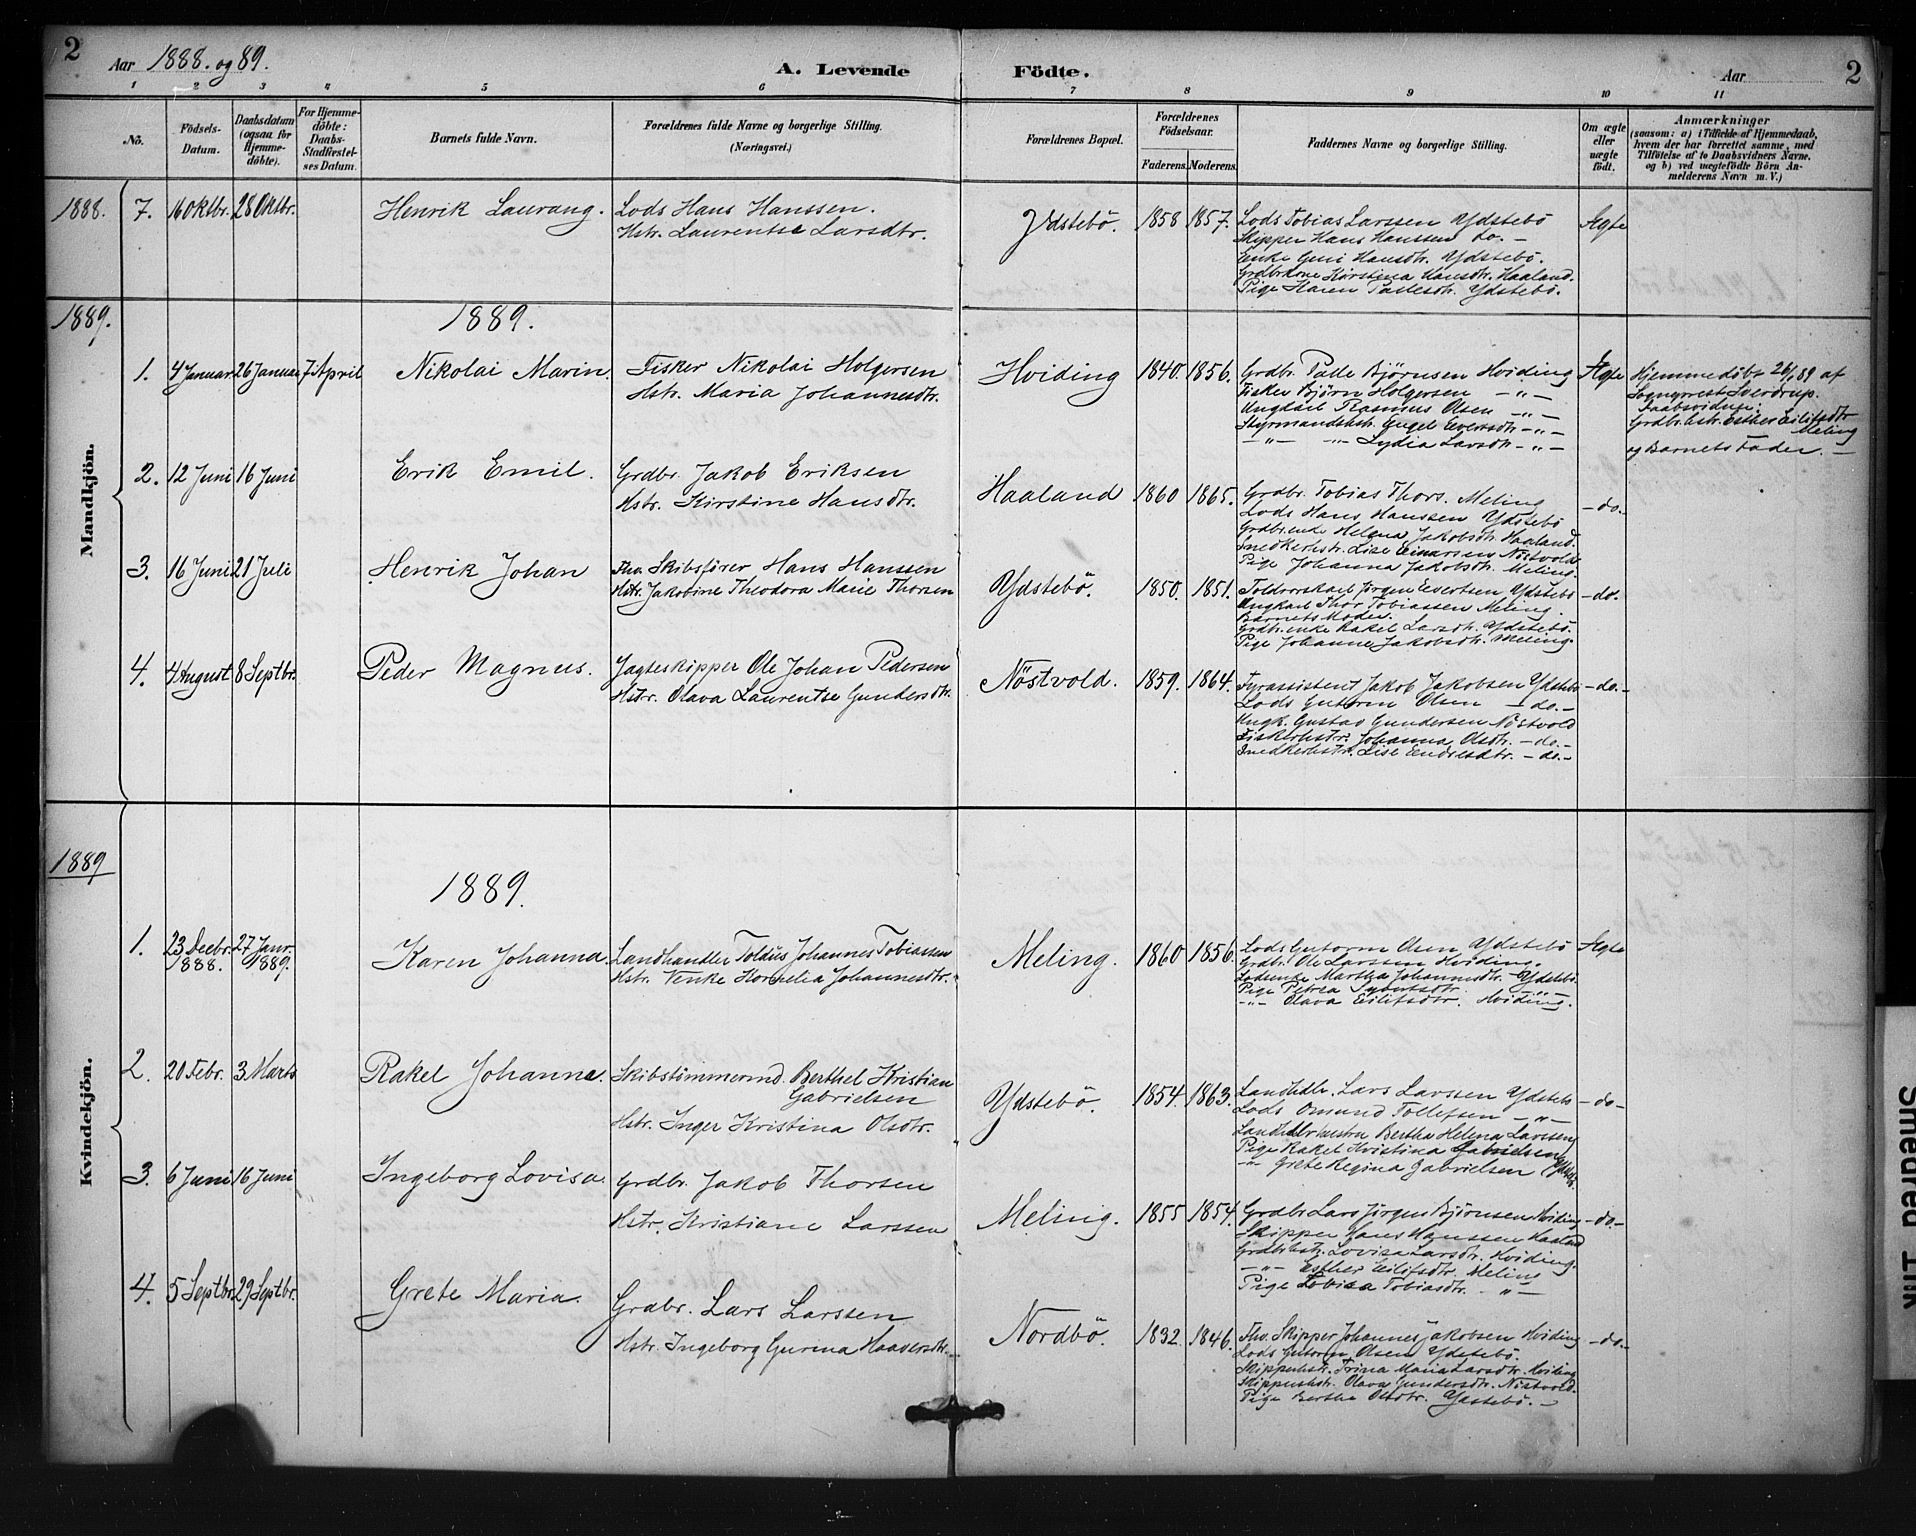 2
Aar 1888. og 89.
A. Levende Födte.
Aar
2
1 2 3 4 5 6 7 8 9 10 11
No.
Födsels-Datum.
Daabsdatum (ogsaa for Hjemme-döbte).
For Hjemme-döbte: Daabs-Stadfæstel-ses Datum.
Barnets fulde Navn.
Forældrenes fulde Navne og borgerlige Stilling. (Næringsvei.)
Forældrenes Bopæl.
Forældrenes Födselsaar.
Faderens. Moderens.
Faddernes Navne og borgerlige Stilling.
Om ægte eller uægte födt.
Anmærkninger
(saasom: a) i Tilfælde af Hjemmedaab, hvem der har forrettet samme, med Tilföielse af to Daabsvidners Navne, og b) ved uægtefödte Börn An-melderens Navn m. V.)
1888. 7. 16 Oktbr. 28 Oktbr. Henrik Laurang. Lods Hans Hanssen.
Hstr. Laurentse Larsdtr.
Ydstebö. 1858 1857. Lods Tobias Larssen Ydstebö Ægte
Skipper Hans Hanssen do. -
Enke Guri Hansdtr. Ydstebö.
Grdbrkone Kirstina Hansdtr. Haaland.
Pige Karen Pallesdtr. Ydstebö.
1889.
1889.
Mandkjön.
1. 4 Januar 26 Januar 7 April Nikolai Marin. Fisker Nikolai Holgersen
Hstr. Maria Johannesdtr.
Hviding 1840. 1856. Grdbr. Palle Björnsen Hviding Ægte
Fisker Björn Holgersen -"-
Ungkarl Rasmus Olsen -"-
Styrmandshstr. Engel Evertsdtr -"-
-"- -"- Lydia Larsdtr -"-
Hjemmedöbt 26/1 89 af
Sogneprest Sverdrup.
Daabsvidner:
Grdbr.hstr. Esther Eilifsdtr
Meling
og Barnets Fader. -
2. 12 Juni 16 Juni Erik Emil. Grdbr. Jakob Eriksen
Hstr. Kirstine Hansdtr.
Haaland 1860 1865. Grdbr. Tobias Thors. Meling -do.-
Lods Hans Hanssen Ydstebö
Grdbr.enke Helena Jakobsdtr. Haaland.
Snedkerhstr. Lise Einarsen Nöstvold
Pige Johanna Jakobsdtr. Meling.
3. 16 Juni 21 Juli Henrik Johan Fhv. Skibsförer Hans Hanssen
Hstr. Jakobine Theodora Marie Thorsen
Ydstebö. 1850. 1851. Toldrorskarl Jörgen Evertsen Ydstebö -do.
Ungkarl Thor Tobiassen Meling.
Barnets Moder.
Grdbr.enke Rakel Larsdtr. Ydstebö.
Pige Johanne Jakobsdtr. Meling.
4. 4 August 8 Septbr. Peder Magnus. Jagteskipper Ole Johan Pedersen
Hstr. Olava Laurentse Gundersdtr.
Nöstvold. 1859. 1864. Fyrassistent Jakob Jakobsen Ydstebö -do.-
Lods Gutorm Olsen -do.-
Ungk. Gustav Gundersen Nöstvold
Fiskerhstr. Johanna Olsdtr. -do.-
Snedkerhstr. Lise Endresdtr. -do.-
1889
1889.
Kvindekjön.
1. 23 Decbr. 1888. 27 Janr. 1889. Karen Johanna. Landhandler Toldus Johannes Tobiassen
Hstr. Tenke Kornelia Johannesdtr.
Meling. 1860 1856. Lods Gutorm Olsen Ydstebö Ægte
Grdbr. Ole Larssen Hviding.
Lodsenke Martha Johannesdtr. Ydstebö.
Pige Petrea -"-
-"- Olava Eilifsdtr. Hviding.
2. 20 Febr. 3 Marts Rakel Johanne. Skibstömmermd. Berthel Kristian
Gabrielsen
Hstr. Inger Kristina Olsdtr.
Ydstebö. 1854. 1863. Landhdlr. Lars Larssen Ydstebö -do-
Lods Omund Tollefsen -"-
Landhdlerhustru Bertha Helena Larssen
Pige Rakel Kristina Gabrielsen
-"- Grete Regina Gabrielsen Ydstebö.
3. 6 Juni 16 Juni Ingeborg Lovisa. Grdbr. Jakob Thorsen
Hstr. Kristiane Larssen
Meling. 1855 1854. Grdbr Lars Jörgen Björnsen Hviding -do.-
Skipper Hans Hanssen Haaland
Grdbrhstr. Lovisa Larsdtr. Hviding.
-"- Esther Eilifsdtr. Meling
Pige Lovisa Tobiasdtr. -"-
4. 5 Septbr. 29 Septbr. Grete Maria. Grdbr. Lars Larssen
Hstr. Ingeborg Gurina Haaversdtr.
Nordbö. 1832. 1846. Fhv. Skipper Johannes Jakobsen Hviding -do.-
Lods Gutorm Olsen Ydstebö.
Skipperhstr. Trina Maria Larsdtr. Hviding
Skipperhstr. Olava Gundersdtr. Nöstvold.
Pige Bertha Olsdtr. Ydstebö. -